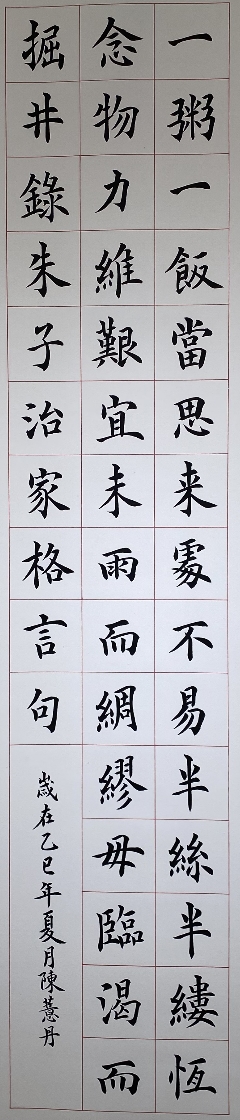 一粥一飯當思来處不易半絲半縷恆
念物力維艱宜未雨而綢繆毋臨渴而
掘井錄朱子治家格言句
歲在乙巳年夏月陳薏丹